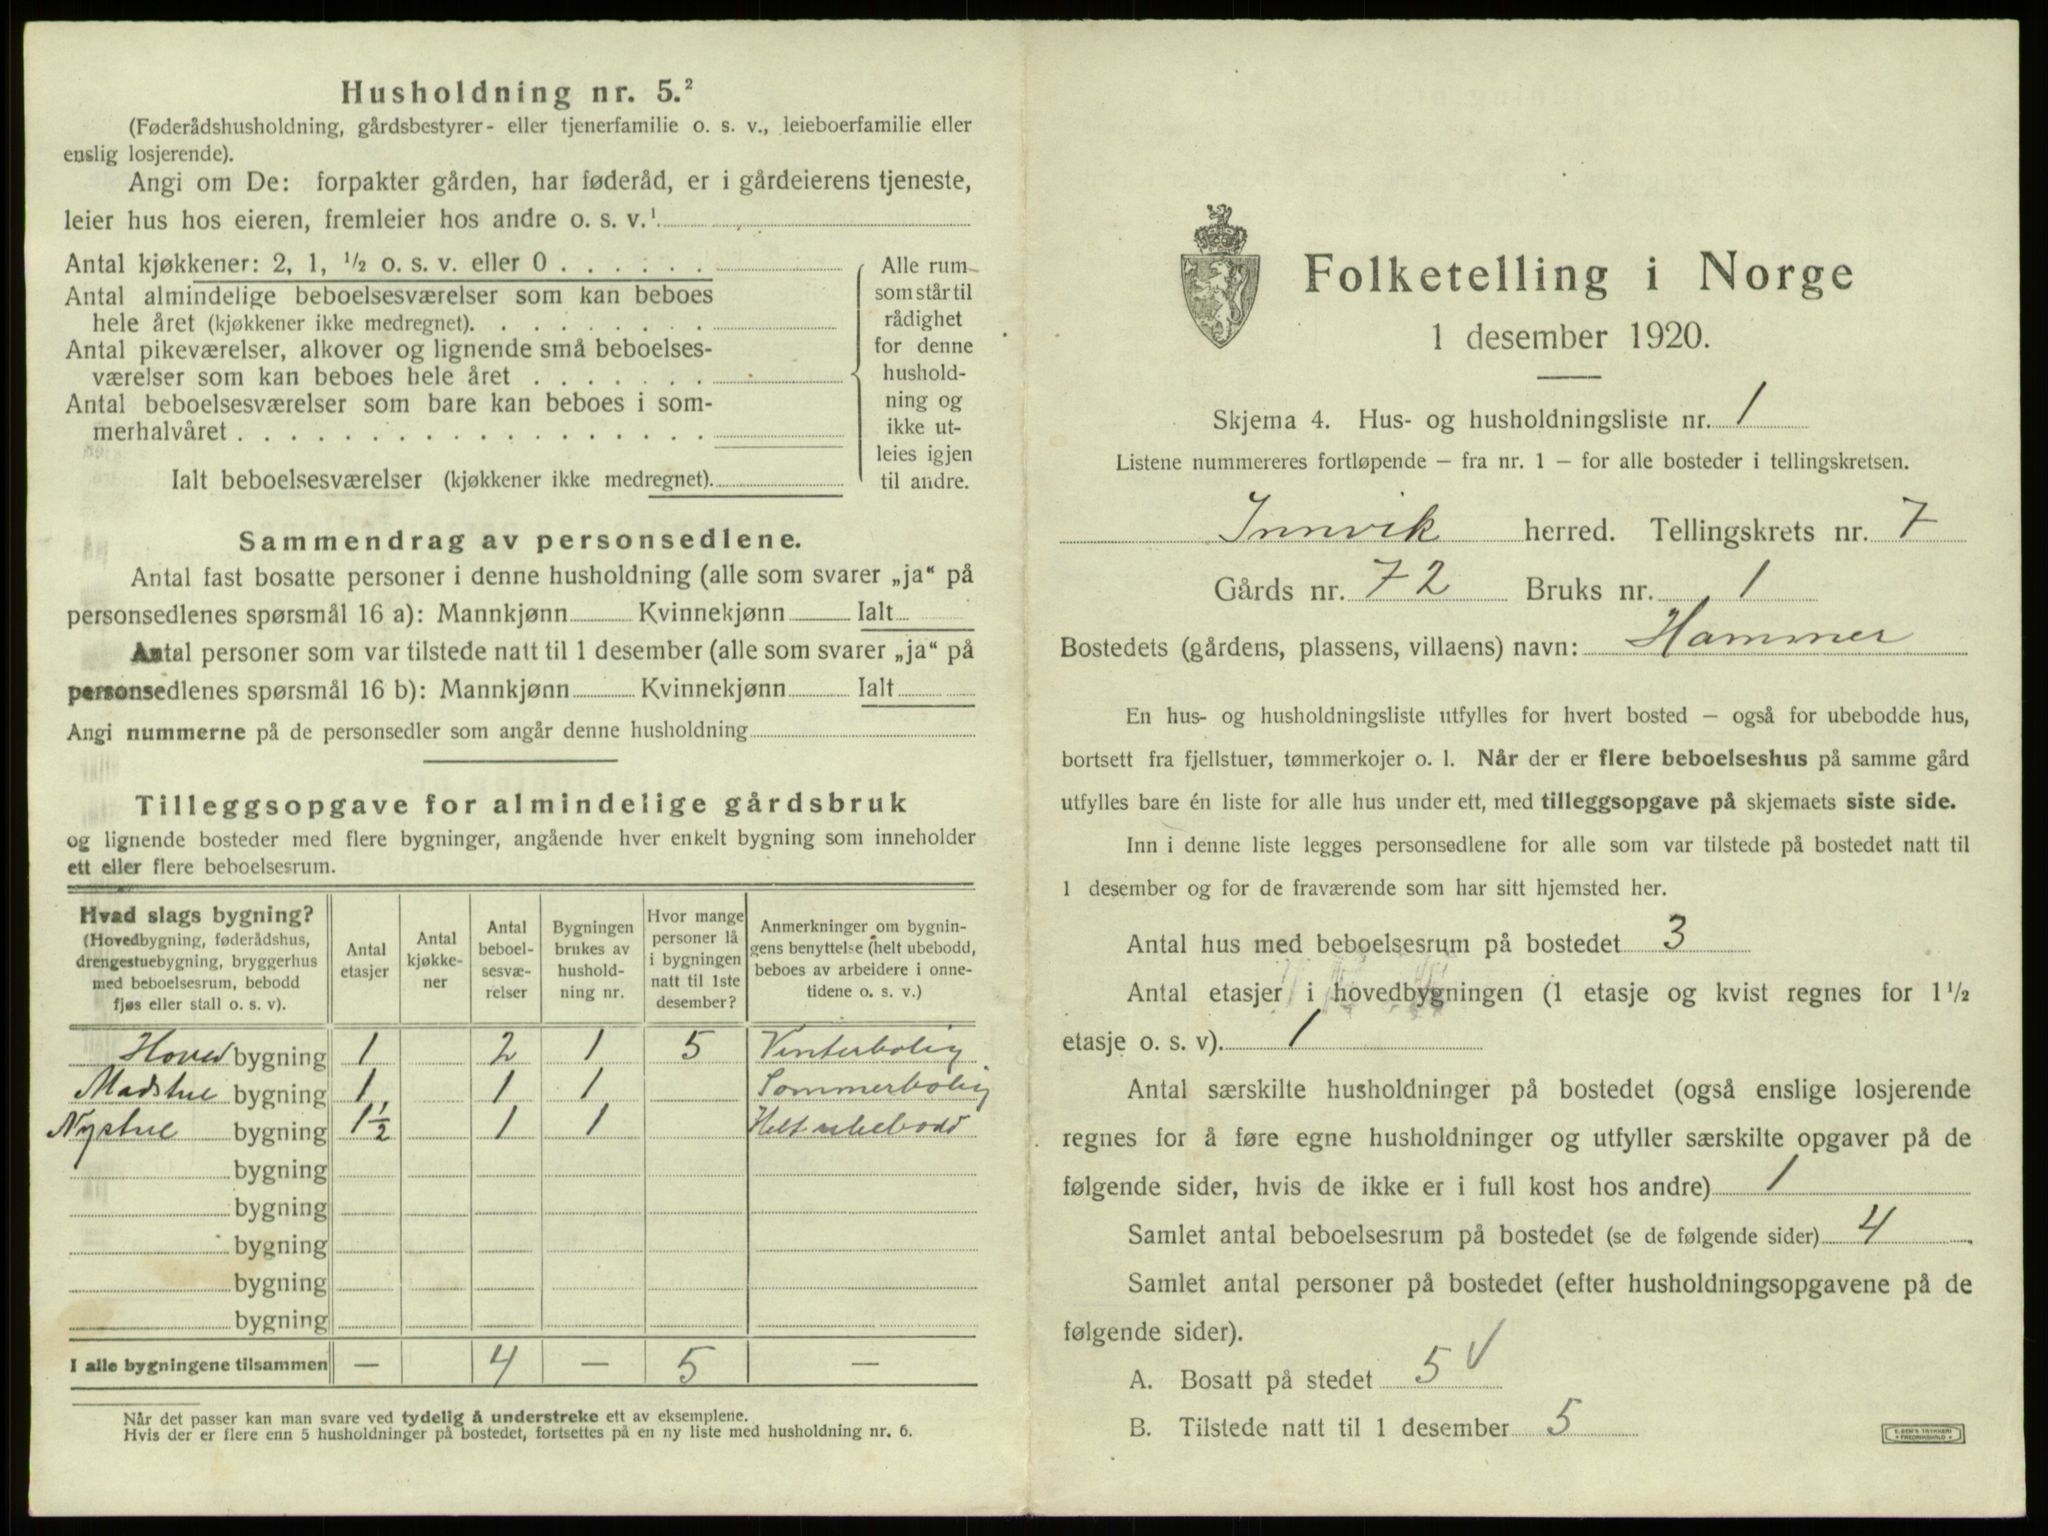 Husholdning nr. 5.²
(Føderådshusholdning, gårdsbestyrer- eller tjenerfamilie o. s. v., leieboerfamilie eller
enslig losjerende).
Angi om De: forpakter gården, har føderåd, er i gårdeierens tjeneste,
leier hus hos eieren, fremleier hos andre o. s. v.¹
Antal kjøkkener: 2, 1, ½ o. s. v. eller 0 . . . . . .
Antal almindelige beboelsesværelser som kan beboes
hele året (kjøkkener ikke medregnet). . . . . . . . .
Antal pikeværelser, alkover og lignende små beboelses-
værelser som kan beboes hele året . . . . . . .
Antal beboelsesværelser som bare kan beboes i som-
merhalvåret . . . . . . . . . . . . . . . . . .
Ialt beboelsesværelser (kjøkkener ikke medregnet).
Alle rum
som står til
rådighet
for denne
hushold-
ning og
ikke ut-
leies igjen
til andre.
Sammendrag av personsedlene.
Antal fast bosatte personer i denne husholdning (alle som svarer „ja“ på
personsedlenes spørsmål 16 a): Mannkjønn Kvinnekjønn Ialt
Antal personer som var tilstede natt til 1 desember (alle som svarer „ja“ på
personsedlenes spørsmål 16 b): Mannkjønn Kvinnekjønn Ialt
Angi nummerne på de personsedler som angår denne husholdning
Tilleggsopgave for almindelige gårdsbruk
og lignende bosteder med flere bygninger, angående hver enkelt bygning som inneholder
ett eller flere beboelsesrum.
Hvad slags bygning?
(Hovedbygning, føderådshus,
drengestuebygning, bryggerhus
med beboelsesrum, bebodd
fjøs eller stall o. s. v).
Antal
etasjer
Antal
kjøkke-
ner
Antal
beboel-
sesvæ-
relser
Bygningen
brukes av
hushold-
ning nr.
Hvor mange
personer lå
i bygningen
natt til 1ste
desember?
Anmerkninger om bygnin-
gens benyttelse (helt ubebodd,
beboes av arbeidere i onne-
tidene o. s. v.)
Hoved bygning 1 2 1 5 Vinterbolig
Madstue bygning 1 1 1 Sommerbolig
Nystue bygning 1½ 1 1 Helt ubebodd
bygning
bygning
bygning
bygning
bygning
I alle bygningene tilsammen — 4 — 5 —
Når det passer kan man svare ved tydelig å understreke ett av eksemplene.
Hvis der er flere enn 5 husholdninger på bostedet, fortsettes på en ny liste med husholdning nr. 6.
Folketelling i Norge
1 desember 1920.
Skjema 4. Hus- og husholdningsliste nr. 1
Listene nummereres fortløpende – fra nr. 1 – for alle bosteder i tellingskretsen.
Innvik herred. Tellingskrets nr. 7
Gårds nr. 72 Bruks nr. 1
Bostedets (gårdens, plassens, villaens) navn: Hammer
En hus- og husholdningsliste utfylles for hvert bosted – også for ubebodde hus,
bortsett fra fjellstuer, tømmerkojer o. l. Når der er flere beboelseshus på samme gård
utfylles bare én liste for alle hus under ett, med tilleggsopgave på skjemaets siste side.
Inn i denne liste legges personsedlene for alle som var tilstede på bostedet natt til
1 desember og for de fraværende som har sitt hjemsted her.
Antal hus med beboelsesrum på bostedet 3
Antal etasjer i hovedbygningen (1 etasje og kvist regnes for 1½
etasje o. s. v). 1
Antal særskilte husholdninger på bostedet (også enslige losjerende
regnes for å føre egne husholdninger og utfyller særskilte opgaver på de
følgende sider, hvis de ikke er i full kost hos andre) 1
Samlet antal beboelsesrum på bostedet (se de følgende sider) 4
Samlet antal personer på bostedet (efter husholdningsopgavene på de
følgende sider).
A. Bosatt på stedet 5 √
B. Tilstede natt til 1 desember 5